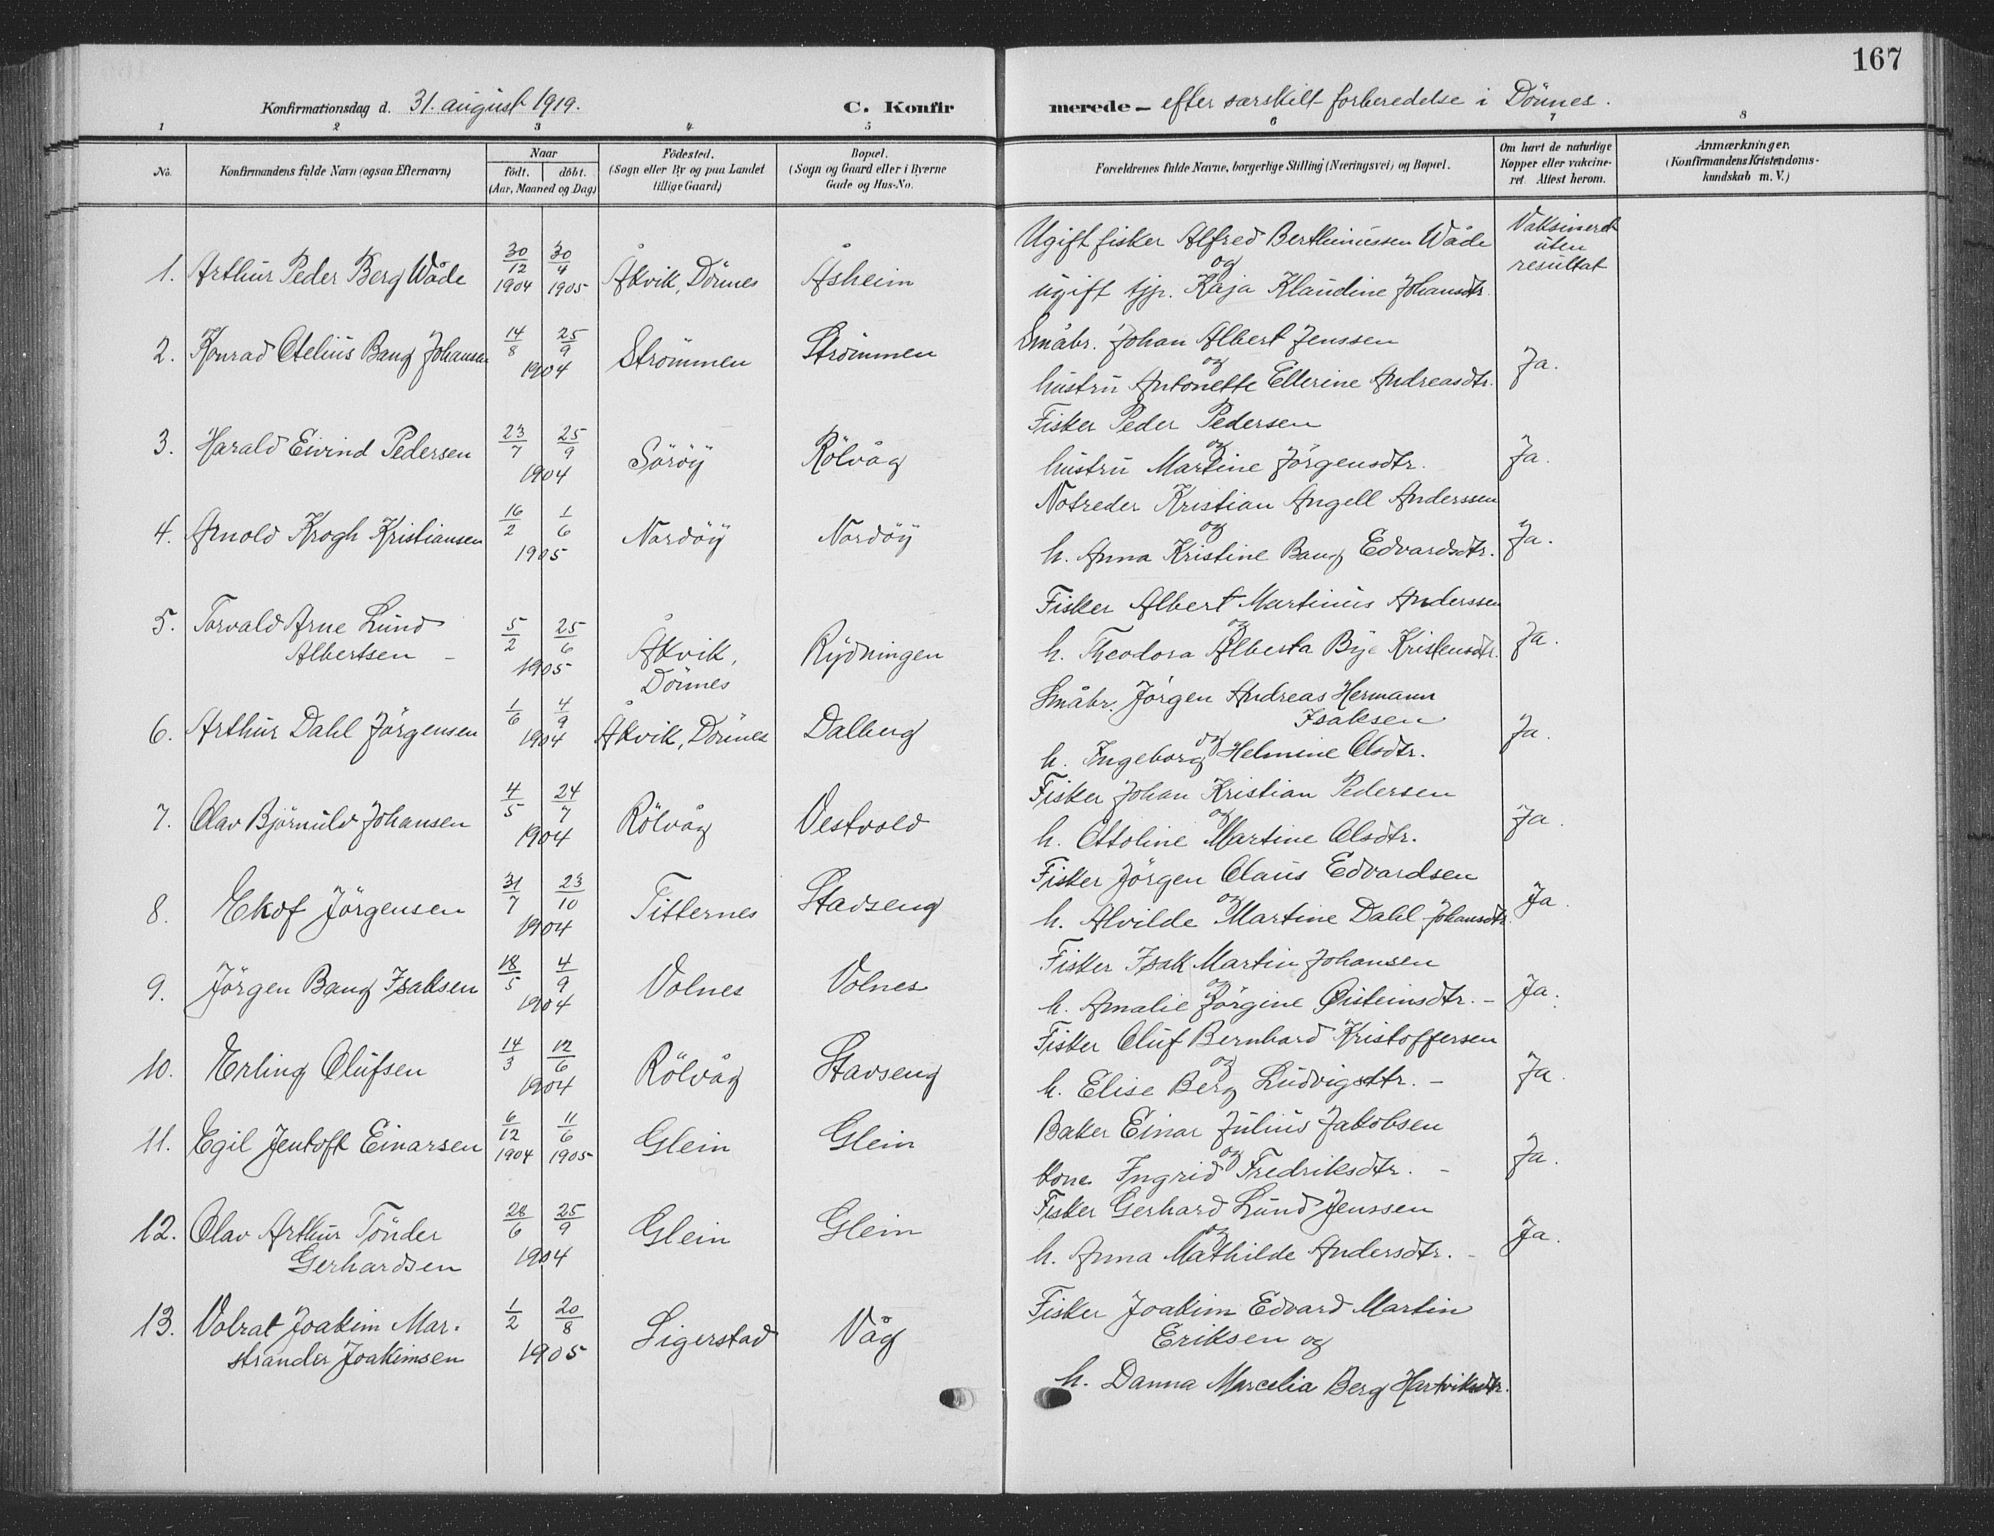 167
Konfirmationsdag d. 31. august 1919. C. Konfir merede – efter særskilt forberedelse i Dönnes.
1 2 3 4 5 6 7 8
No. Konfirmandens fulde Navn (ogsaa Efternavn) Naar født. døbt. (Aar, Maaned og Dag) Fødested. (Sogn eller By og paa Landet tillige Gaard) Bopæl. (Sogn og Gaard eller i Byerne Gade og Hus-No. Forældrenes fulde Navne, borgerlige Stilling (Næringsvei) og Bopæl. Om havt de naturlige Kopper eller vakcineret. Attest herom. Anmærkninger. (Konfirmandens Kristendomskundskab m. V.)
1. Arthur Peder Berg Wåde 30/12 1904 30/4 1905 Åkvik, Dönnes Åsheim Ugift fisker Alfred Berthinussen Wåde
og
ugift tjp. Kaja Klaudine Johansdtr. Vaksinert uten resultat
2. Konrad Otelius Bang Johansen 14/8 25/9 1904 Strömmen Strömmen Småbr. Johan Albert Jenssen
og
hustru Antonette Ellerine Andreasdtr. Ja.
3. Harald Eivind Pedersen 23/7 25/9 1904 Söröy Rölvåg Fisker Peder Pedersen
og
hustru Martine Jörgensdtr. Ja.
4. Arnold Krogh Kristiansen 16/2 1/6 1905 Nordöy Nordöy Notreder Kristian Angell Anderssen
og
h. Anna Kristine Bang Edvardsdtr. Ja.
5. Torvald Arne Lund
Albertsen – 5/2 25/6 1905 Åkvik, Dönnes Rydningen Fisker Albert Martinus Anderssen
og
h. Theodora Alberta Bye Kristensdtr. Ja.
6. Arthur Dahl Jörgensen 1/6 4/9 1904 Åkvik, Dönnes Dalberg Småbr. Jörgen Andreas Hermann
Isaksen
og
h. Ingeborg Helmine Olsdtr. Ja.
7. Olav Björnulv Johansen 4/5 24/7 1904 Rölvåg Vestvold Fisker Johan Kristian Pedersen
og
h. Ottoline Martine Olsdtr. Ja.
8. Ekof Jörgensen 31/7 23/10 1904 Titternes Stavseng Fisker Jörgen Olaus Edvardsen
og
h. Alvilde Martine Dahl Johansdtr. Ja.
9. Jörgen Bang Isaksen 18/5 4/9 1904 Volnes Volnes Fisker Isak Martin Johansen
og
h. Amalie Jörgine Øisteinsdtr. – Ja.
10. Erling Olufsen 14/3 12/6 1904 Rölvåg Stavseng Fisker Oluf Bernhard Kristoffersen
og
h. Elise Berg Ludvigsdtr. – Ja.
11. Egil Jentoft Einarsen 6/12 1904 11/6 1905 Glein Glein Baker Einar Julius Jakobsen
og
kone Ingrid Fredriksdtr. – Ja.
12. Olav Arthur Tönder
Gerhardsen 28/6 25/9 1904 Glein Glein Fisker Gerhard Lund Jenssen
og
h. Anna Mathilde Andersdtr. – Ja.
13. Volrat Joakim Mar-
strander Joakimsen 1/2 20/8 1905 Sigerstad Våg Fisker Joakim Edvard Martin
Eriksen og
h. Danna Marcelia Berg Hartviksdtr.